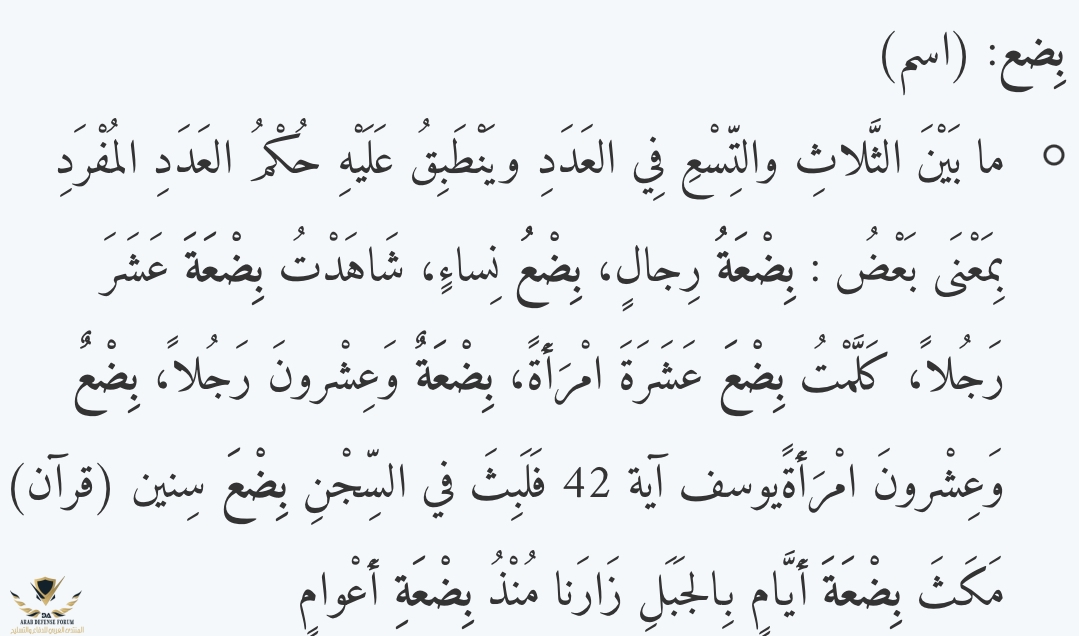 بِضع: (اسم)
ما بَيْنَ الثَّلاثِ والتِّسْعِ فِي العَدَدِ ويَنْطَبِقُ عَلَيْهِ حُكْمُ العَدَدِ المُفْرَدِ
بِمَعْنَى بَعْضُ : بِضْعَةُ رِجالٍ، بِضْعُ نِساءٍ، شَاهَدْتُ بِضْعَةَ عَشَرَ
رَجُلاً، كَلَّمْتُ بِضْعَ عَشَرَةَ امْرَأَةً، بِضْعَةٌ وَعِشْرونَ رَجُلاً، بِضْعٌ
وَعِشْرونَ امْرَأَةًيوسف آية 42 فَلَبِثَ في السِّجْنِ بِضْعَ سِنين (قرآن)
مَكَثَ بِضْعَةَ أَيَّامٍ بِالجَبَلِ زَارَنا مُنْذُ بِضْعَةِ أَعْوامٍ
ARAB DEFENSE FORUM
المنتدى العربي للدفاع والتسليح